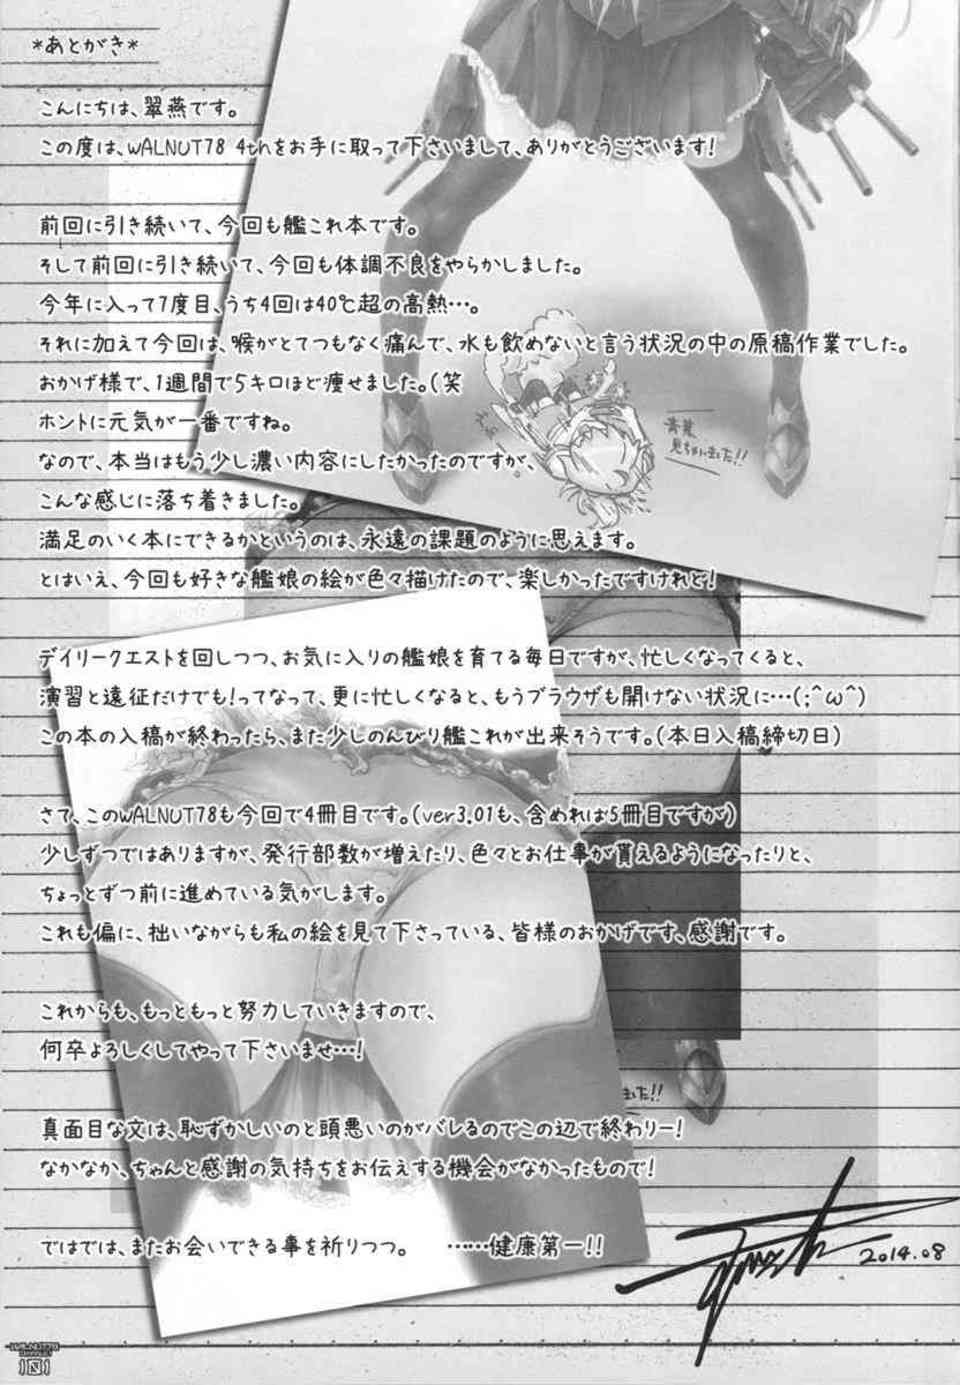 *あとがき*
こんにちは、翠燕です。
この度は、WALNUT78 4thをお手に取って下さいまして、ありがとうございます!
前回に引き続いて、今回も艦これ本です。
そして前回に引き続いて、今回も体調不良をやらかしました。
今年に入って7度目、うち4回は40℃超の高熱…。
それに加えて今回は、喉がとてつもなく痛んで、水も飲めないと言う状況の中の原稿作業でした。
おかげ様で、1週間で5キロほど痩せました。(笑
ホントに元気が一番ですね。
なので、本当はもう少し濃い内容にしたかったのですが、
こんな感じに落ち着きました。
満足のいく本にできるかというのは、永遠の課題のように思えます。
とはいえ、今回も好きな艦娘の絵が色々描けたので、楽しかったですけれど!
青葉
見ちゃいました!!
デイリークエストを回しつつ、お気に入りの艦娘を育てる毎日ですが、忙しくなってくると、
演習と遠征だけでも!ってなって、更に忙しくなると、もうブラウザも開けない状況に…(;^ω^)
この本の入稿が終わったら、また少しのんびり艦これが出来そうです。(本日入稿締切日)
さて、このWALNUT78も今回で4冊目です。(ver3.01も、含めれば5冊目ですが)
少しずつではありますが、発行部数が増えたり、色々とお仕事が貰えるようになったりと、
ちょっとずつ前に進めている気がします。
これも偏に、拙いながらも私の絵を見て下さっている、皆様のおかげです、感謝です。
これからも、もっともっと努力していきますので、
何卒よろしくしてやって下さいませ…!
ました!!
真面目な文は、恥ずかしいのと頭悪いのがバレるのでこの辺で終わりー!
なかなか、ちゃんと感謝の気持ちをお伝えする機会がなかったもので!
ではでは、またお会いできる事を祈りつつ。 ……健康第一!!
2014.08
101